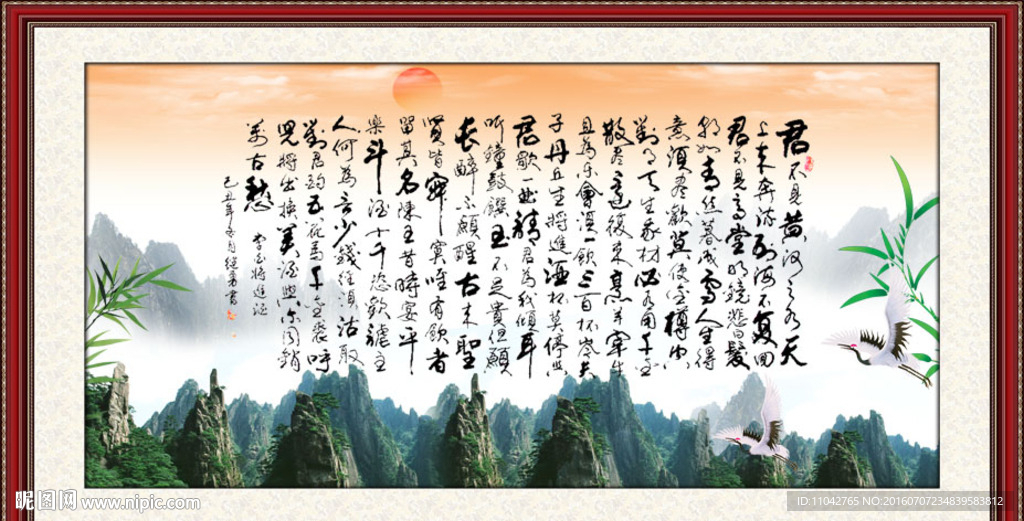 君不見黄河之水天
上来奔流到海不复回
君不見高堂明鏡悲白髮
朝如青丝暮成雪人生得
意須尽歡莫使金樽空
對月天生我材必有用千金
散尽還復来烹羊宰牛
且為乐會須一飲三百杯岑夫
子丹丘生將進酒杯莫停與
君歌一曲請君為我傾耳
听鐘鼓饌玉不足貴但願
長醉不願醒古来聖
賢皆寂寞唯有飲者
留其名陳王昔時宴平
樂斗酒十千恣歡謔主
人何為言少錢径須沽取
對君酌五花馬千金裘呼
兒將出換美酒與尔同銷
萬古愁 李白將進酒
己丑年
昵图网 www.nipic.com
ID:11042765 NO:20160707234839583812